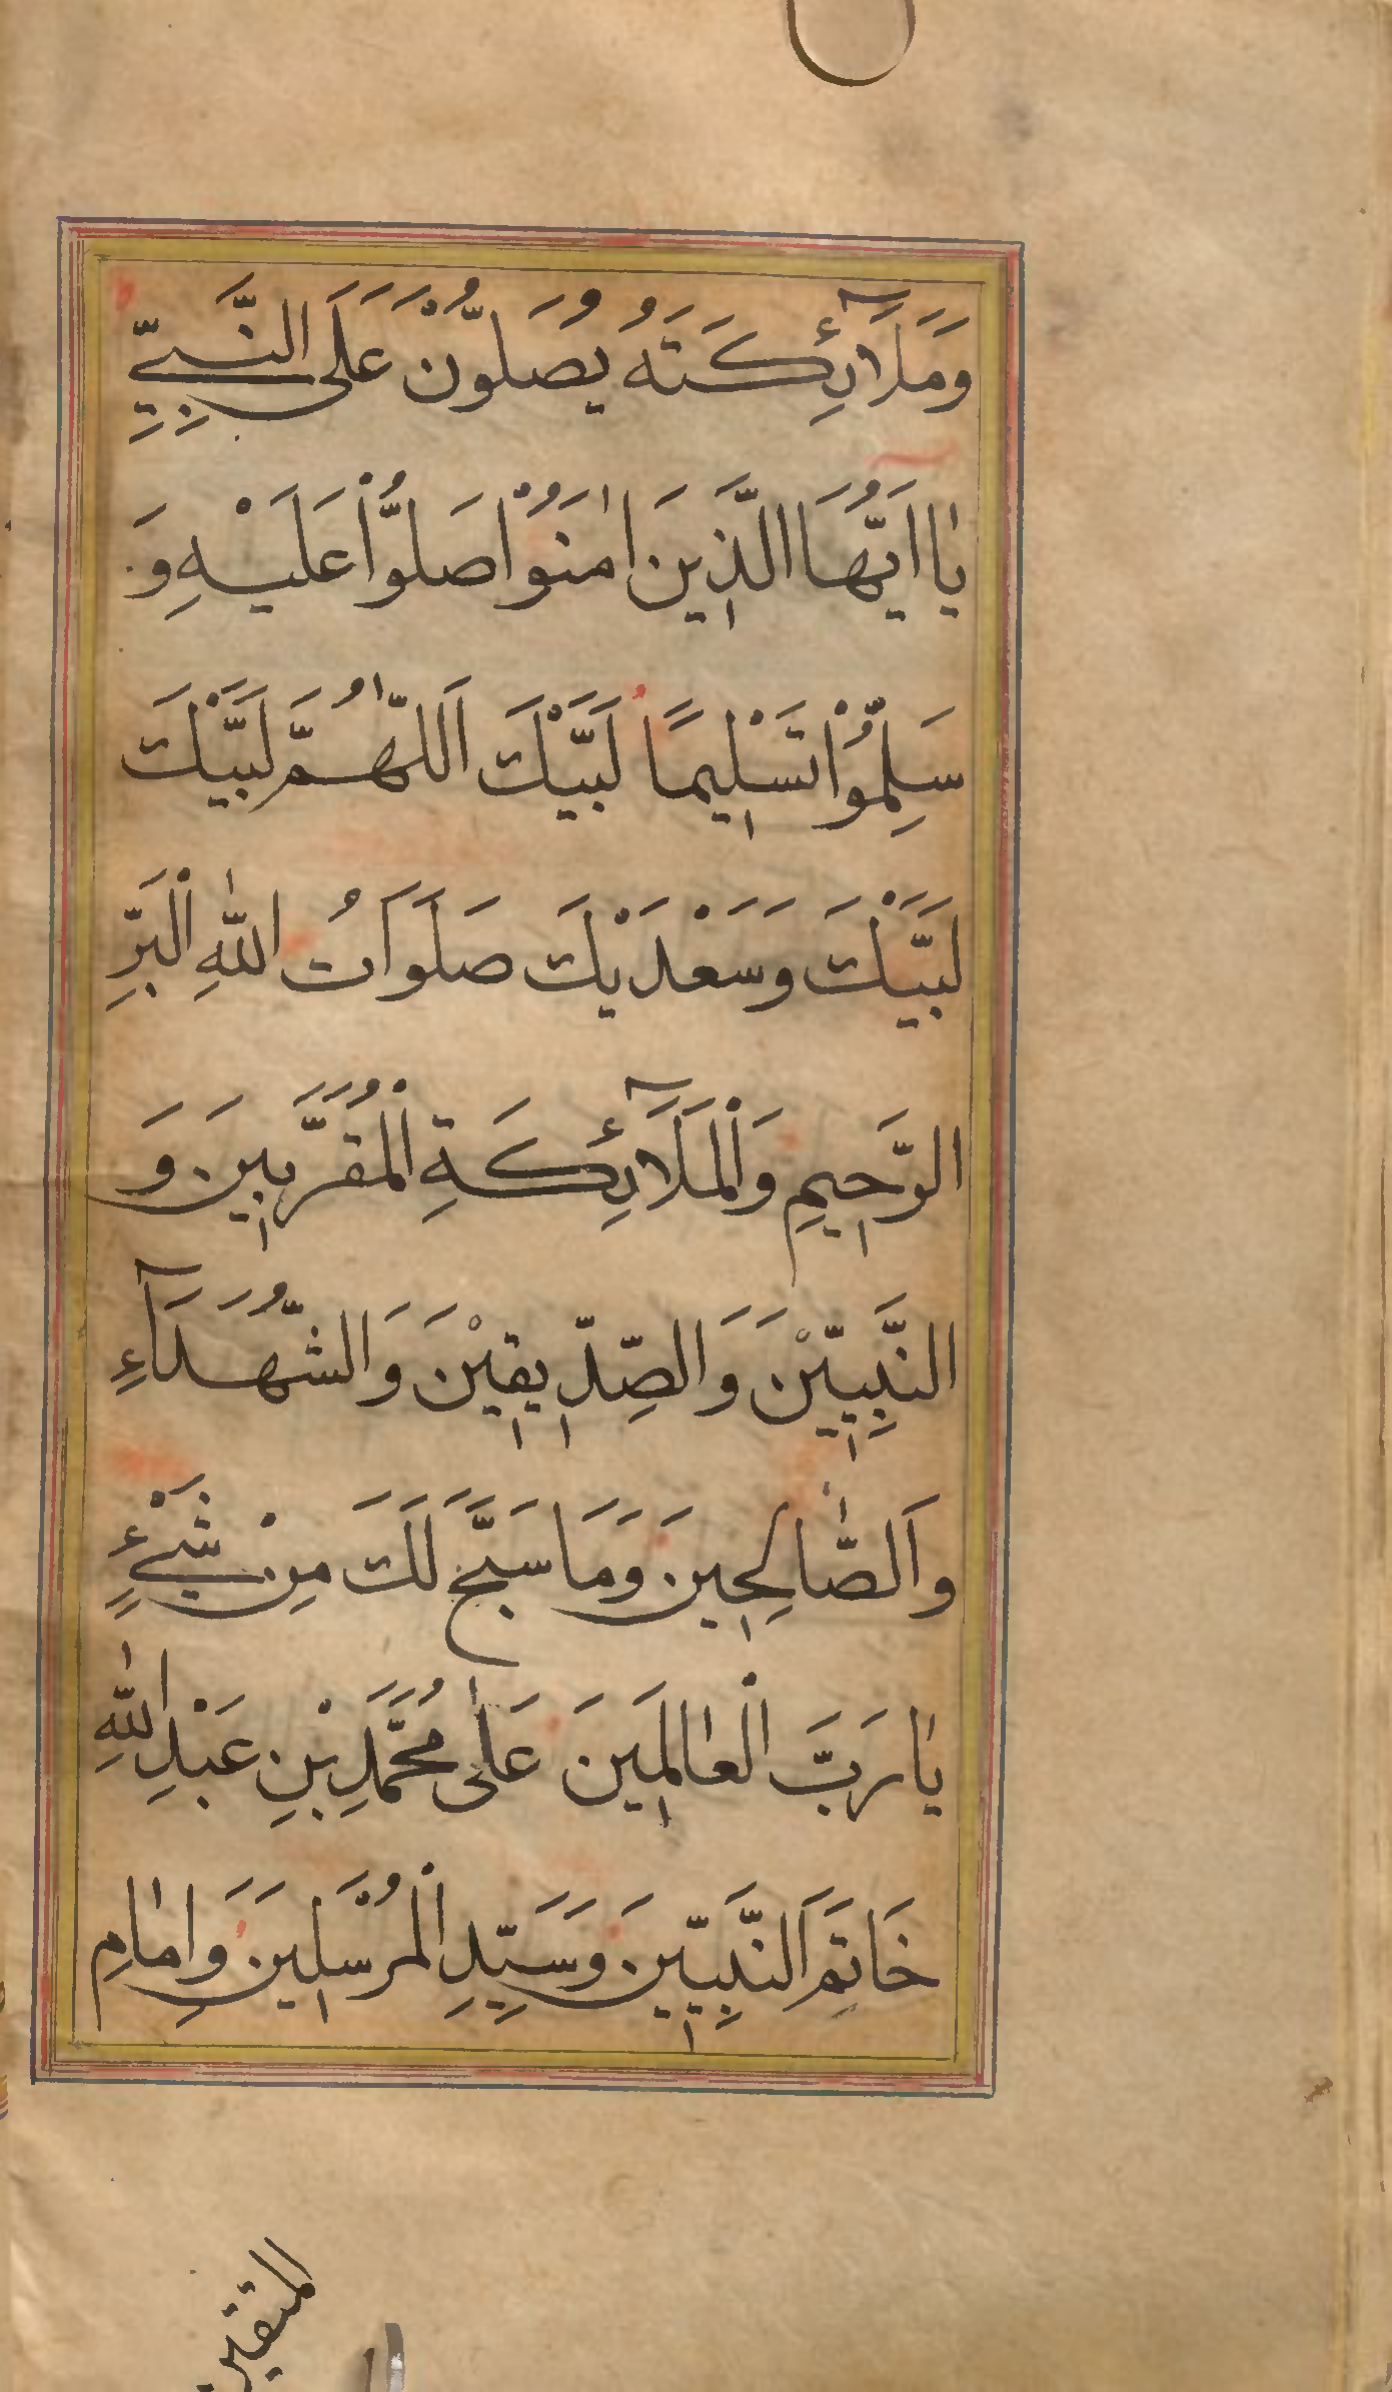 وَمَلَآئِكَتَهُ يُصَلُّوْنَ عَلَى النَّبِيِّ
يٰا اَيُّهَا الَّذ۪ينَ اٰمَنُوْا صَلُّوْا عَلَيْهِ وَ
سَلِّمُوْا تَسْل۪يمًا لَبَّيْكَ اَللّٰهُمَّ لَبَّيْكَ
لَبَّيْكَ وَسَعْدَيْكَ صَلَوَاتُ اللّٰهِ الْبَرِّ
الرَّح۪يمِ وَالْمَلَآئِكَةِ الْمُقَرَّب۪ينَ وَ
النَّبِيّ۪يْنَ وَالصِّدّ۪يق۪يْنَ وَالشُّهَدَآءِ
وَالصّٰالِح۪ينَ وَمَا سَبَّحَ لَكَ مِنْ شَيْءٍ
يٰا رَبَّ الْعٰالَم۪ينَ عَلٰى مُحَمَّدِ بْنِ عَبْدِ اللّٰهِ
خَاتِمَ النَّبِيّ۪ينَ وَسَيِّدِ الْمُرْسَل۪ينَ وَاِمٰامِ
المتقين